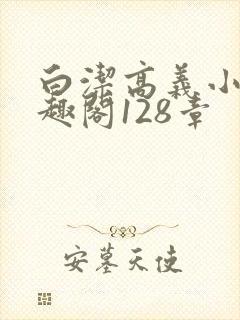 白洁高义小
趣阁128章
安墓天使